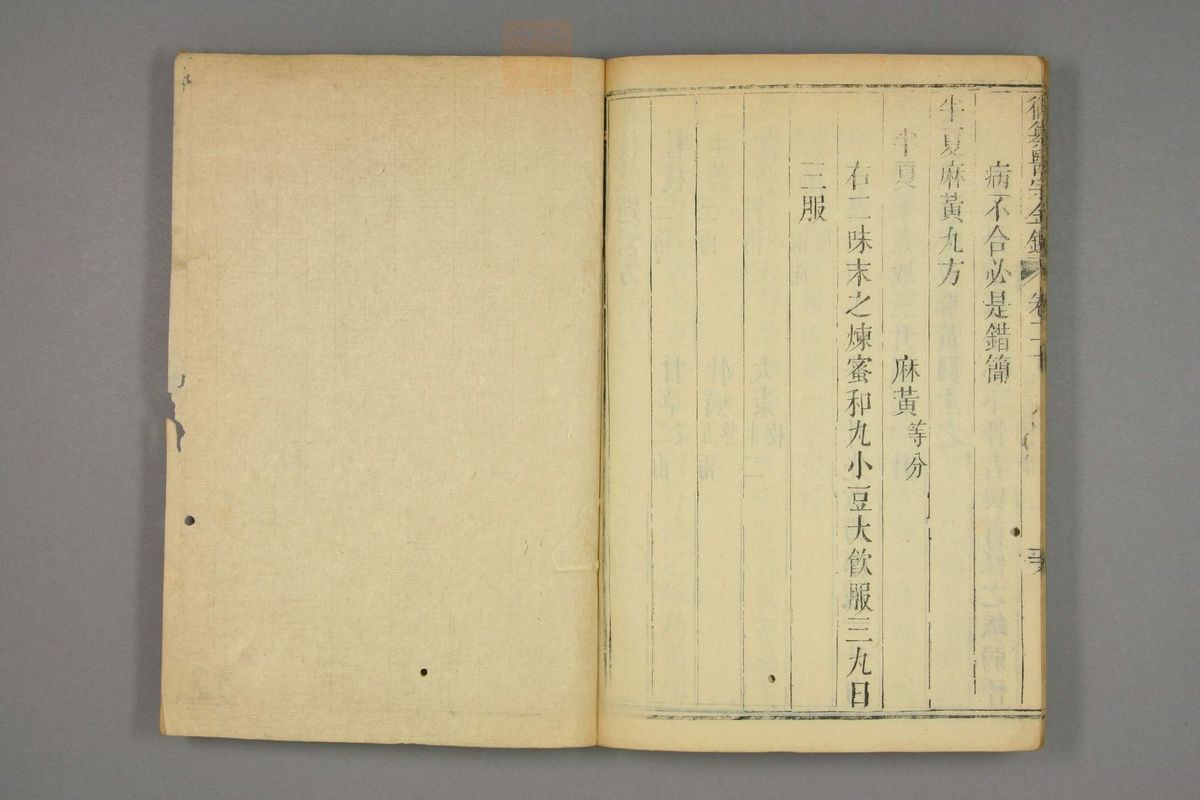 御纂醫宗金鑑 卷二十
病不合必是錯簡
半夏麻黃丸方
半夏 麻黃等分
右二味末之煉蜜和丸小豆大飲服三丸日
三服